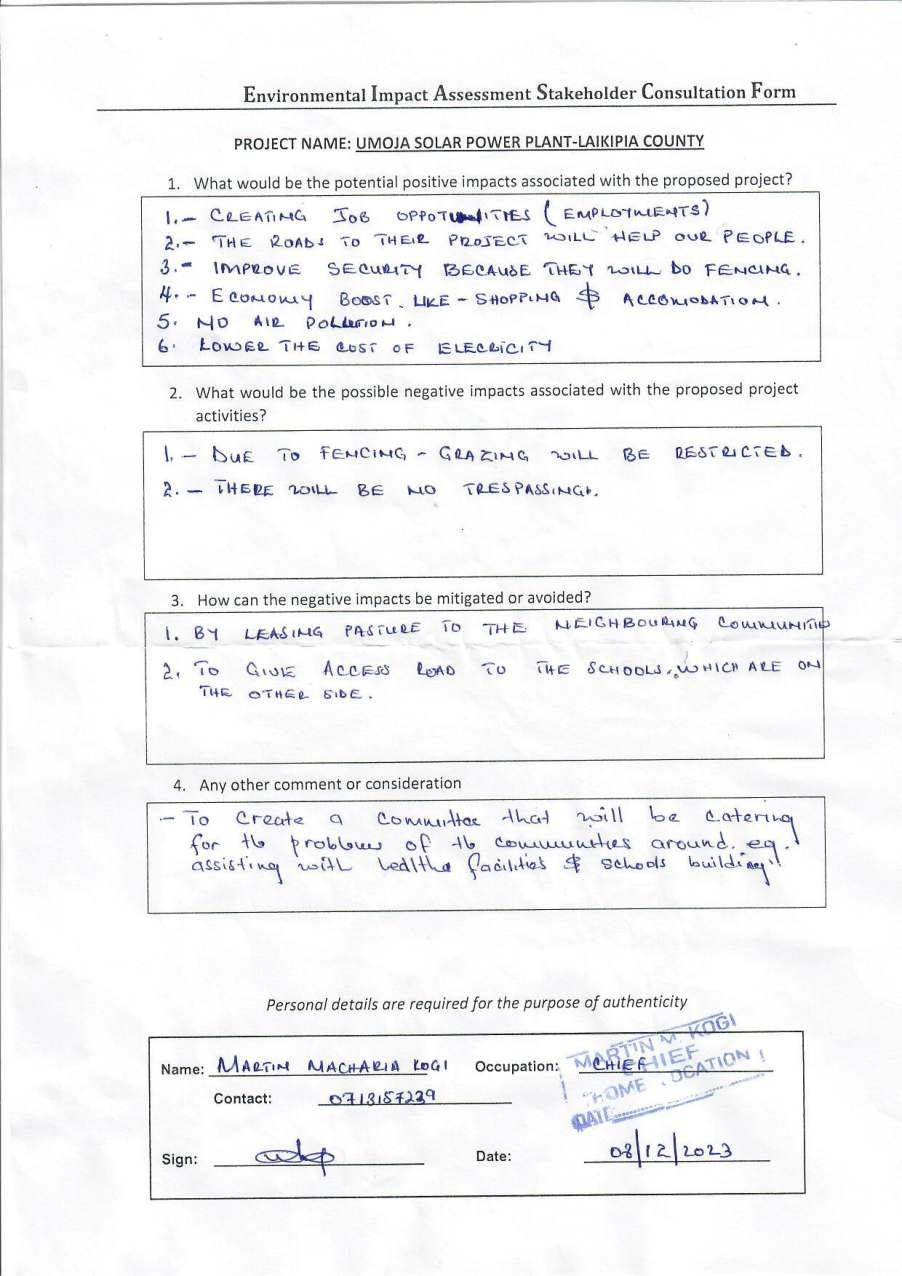 Environmental Impact Assessment Stakeholder Consultation Form
PROJECT NAME: UMOJA SOLAR POWER PLANT-LAIKIPIA COUNTY
1. What would be the potential positive impacts associated with the proposed project?
1.- CREATING JOB OPPOTUNITIES (EMPLOYMENTS)
2.- THE ROADS TO THEIR PROJECT WILL HELP OUR PEOPLE.
3.- IMPROVE SECURITY BECAUSE THEY WILL DO FENCING.
4.- ECONOMY BOOST. LIKE - SHOPPING & ACCOMODATION.
5. NO AIR POLLUTION.
6. LOWER THE COST OF ELECRICITY
2. What would be the possible negative impacts associated with the proposed project
activities?
1. - DUE TO FENCING - GRAZING WILL BE RESTRICTED.
2. - THERE WILL BE NO TRESPASSING.
3. How can the negative impacts be mitigated or avoided?
1. BY LEASING PASTURE TO THE NEIGHBOURING COMMUNITIES
2. TO GIVE ACCESS ROAD TO THE SCHOOLS, WHICH ARE ON
THE OTHER SIDE.
4. Any other comment or consideration
- To Create a Committee that will be catering
for the problems of the communities around. eg.
assisting with facilities & schools building!!
Personal details are required for the purpose of authenticity
MARTIN M. KOGI
Name: MARTIN MACHARIA KOGI Occupation: CHIEF
CHIEF
LOCATION
Contact: 0713157239
DATE
Sign: Date: 08/12/2023